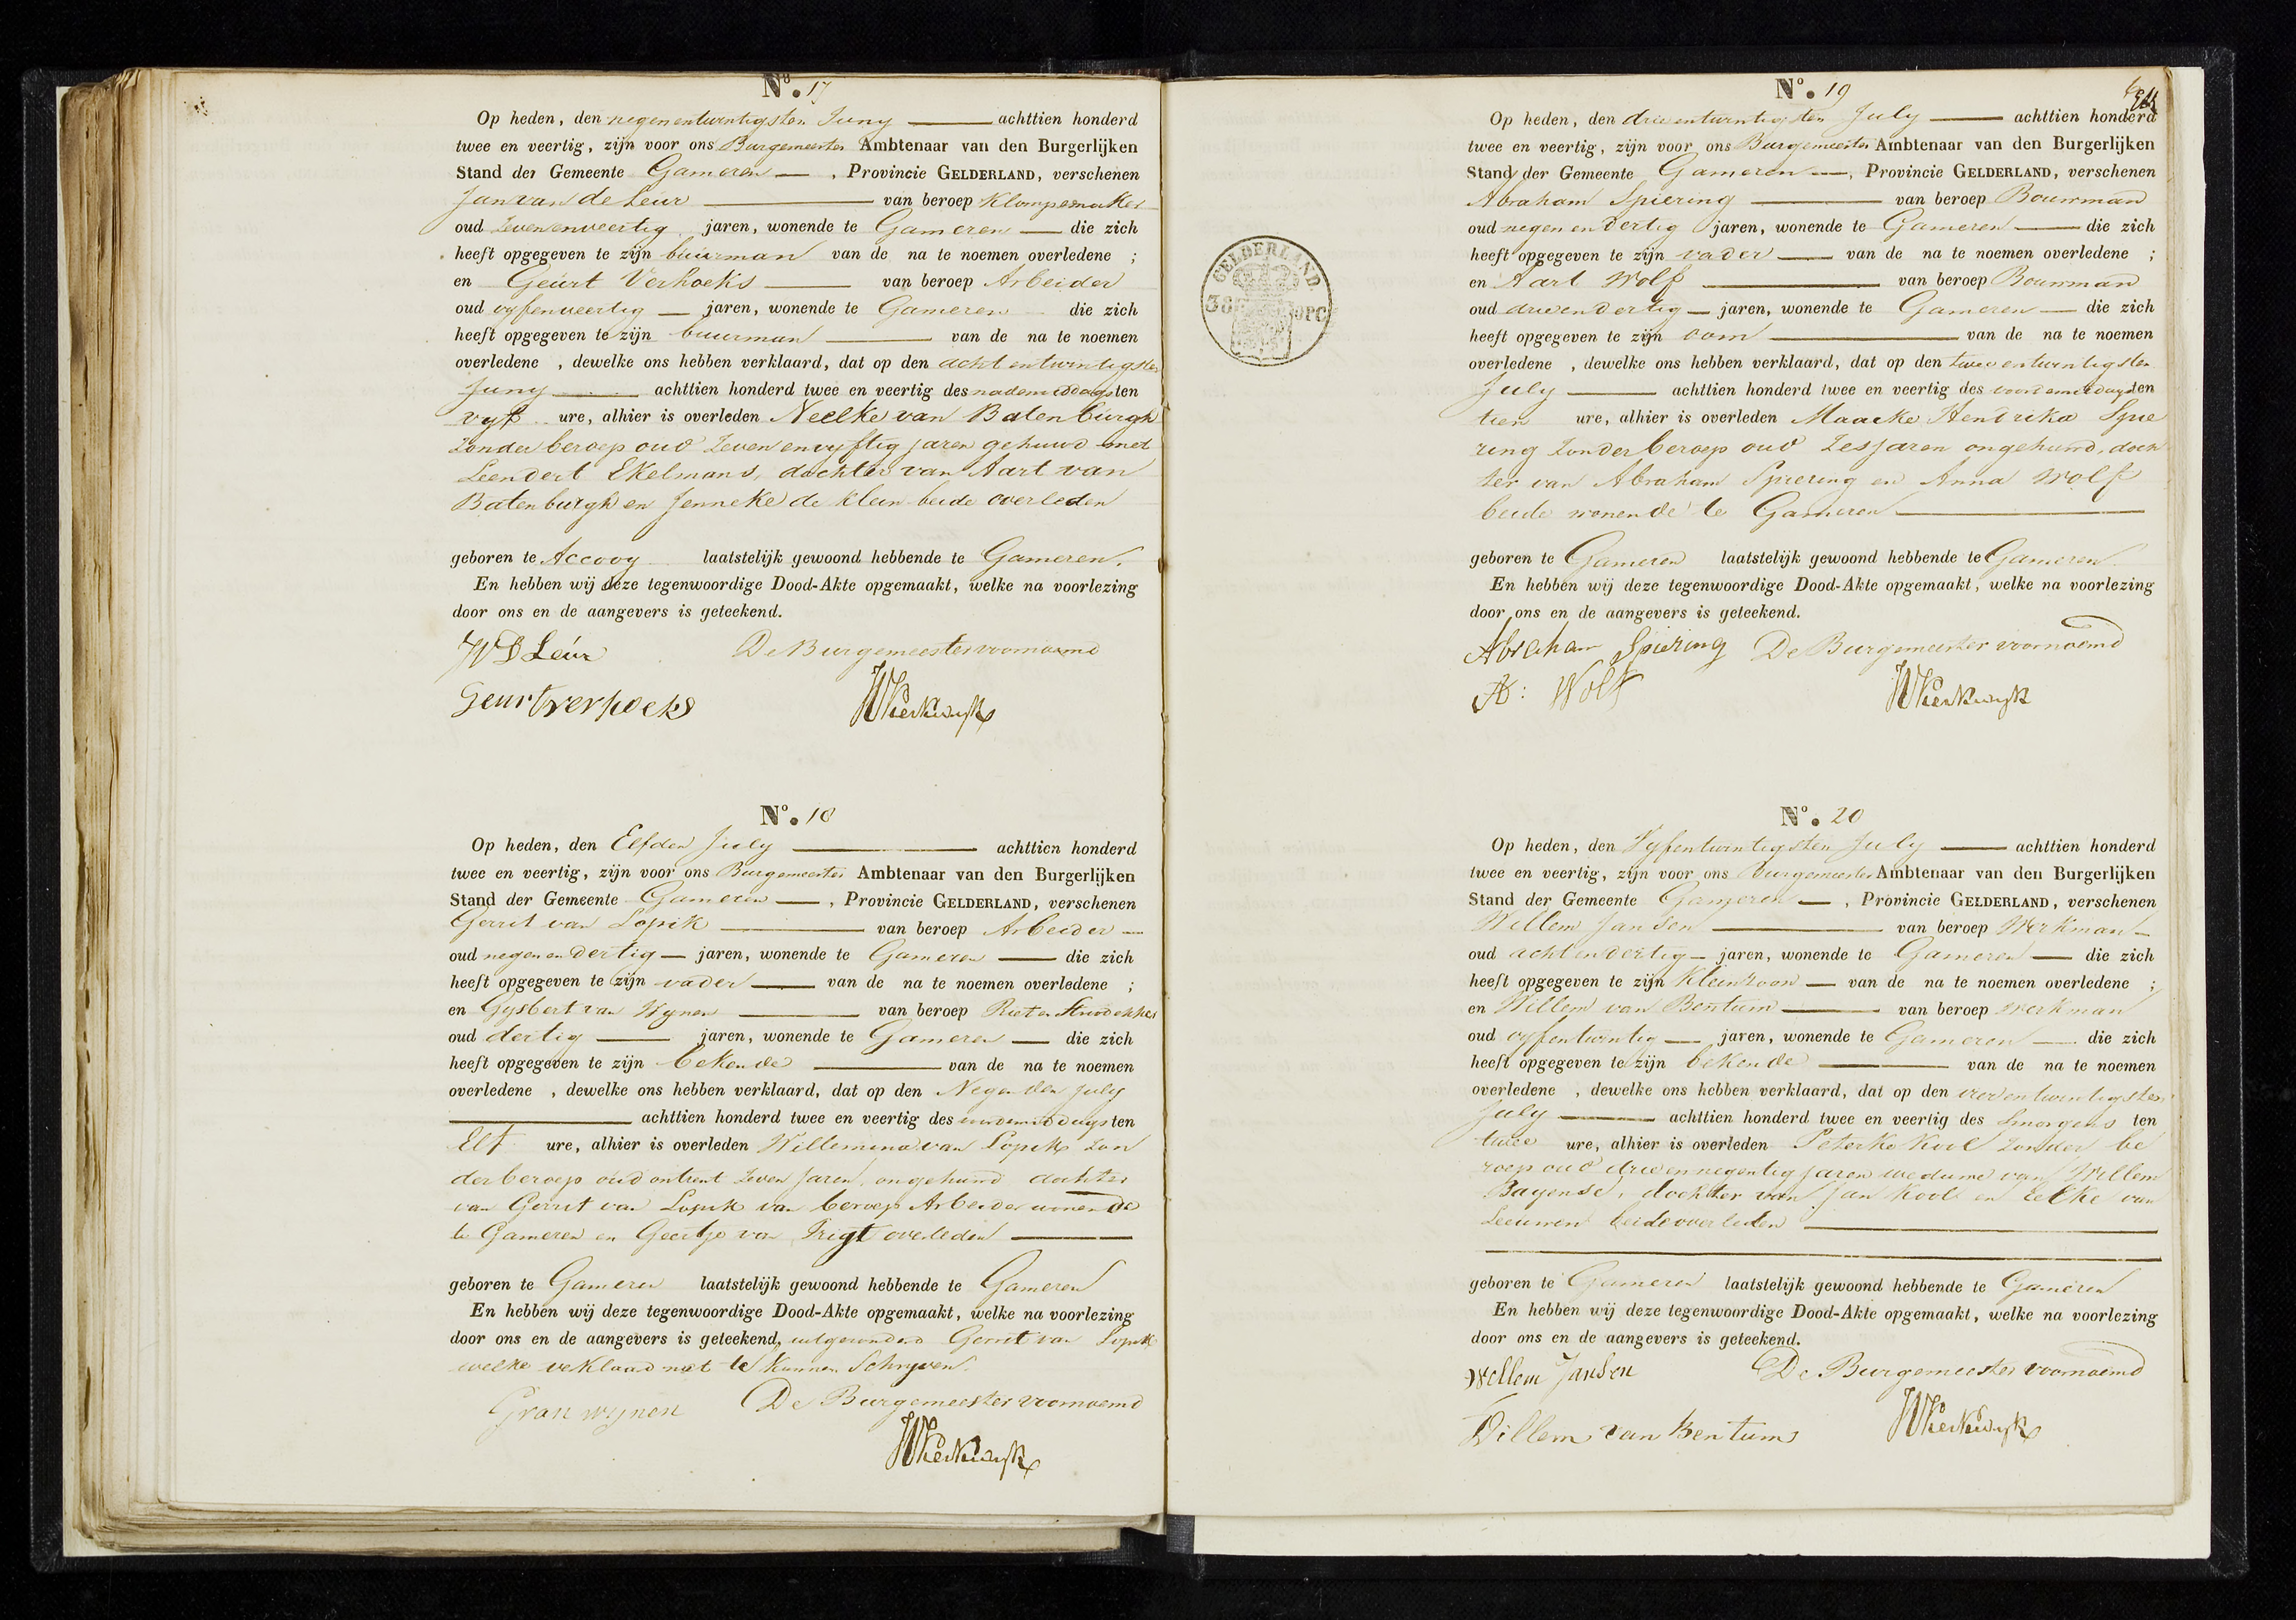 No. 17
Op heden, den negenentwintigsten Juny achttien honderd
twee en veertig, zijn voor ons Burgemeester Ambtenaar van den Burgerlijken
Stand der Gemeente Gameren, Provincie GELDERLAND, verschenen
Jan van de Leur van beroep Klompemaker
oud Zevenenveertig jaren, wonende te Gameren die zich
heeft opgegeven te zijn buurman van de na te noemen overledene ;
en Geurt Verhoeks van beroep Arbeider
oud vyfenveertig jaren, wonende te Gameren die zich
heeft opgegeven te zijn buurman van de na te noemen
overledene , dewelke ons hebben verklaard, dat op den achtentwintigsten
Juny achttien honderd twee en veertig des nademiddags ten
vyf ure, alhier is overleden Neelke van Batenburgh
Zonder beroep oud Zevenenvyftig jaren gehuwd met
Leendert Ekelmans, dochter van Aart van
Batenburgh en Jenneke de Klein beide overleden
geboren te Accooy laatstelijk gewoond hebbende te Gameren.
En hebben wij deze tegenwoordige Dood-Akte opgemaakt, welke na voorlezing
door ons en de aangevers is geteekend.
JVD Leur De Burgemeester voornoemd
Geurt verhoeks
No. 18
Op heden, den Elfden July achttien honderd
twee en veertig, zijn voor ons Burgemeester Ambtenaar van den Burgerlijken
Stand der Gemeente Gameren, Provincie GELDERLAND, verschenen
Gerrit van Lopik van beroep Arbeider
oud negenendertig jaren, wonende te Gameren die zich
heeft opgegeven te zijn vader van de na te noemen overledene ;
en Gysbert van Wynen van beroep Riet en Stroodekker
oud dertig jaren, wonende te Gameren die zich
heeft opgegeven te zijn bekende van de na te noemen
overledene , dewelke ons hebben verklaard, dat op den Negenden July
achttien honderd twee en veertig des voordemiddags ten
Elf ure, alhier is overleden Willemina van Lopik Zon
der beroep oud ontrent Zeven Jaren, ongehuwd dochter
van Gerrit van Lopik van beroep Arbeider wonende
te Gameren en Geertje van Trigt overleden
geboren te Gameren laatstelijk gewoond hebbende te Gameren
En hebben wij deze tegenwoordige Dood-Akte opgemaakt, welke na voorlezing
door ons en de aangevers is geteekend, uitgezonderd Gerrit van Lopik
welke veklaard niet te kunnen Schryven.
G van wynen De Burgemeester voornoemd
No. 19
Op heden, den drieentwintigsten July achttien honderd
twee en veertig, zijn voor ons Burgemeester Ambtenaar van den Burgerlijken
Stand der Gemeente Gameren, Provincie GELDERLAND, verschenen
Abraham Spiering van beroep Bouwman
oud negenendertig jaren, wonende te Gameren die zich
heeft opgegeven te zijn vader van de na te noemen overledene ;
en Aart Wolf van beroep Bouwman
oud drieendertig jaren, wonende te Gameren die zich
heeft opgegeven te zijn oom van de na te noemen
overledene , dewelke ons hebben verklaard, dat op den tweeentwintigsten
July achttien honderd twee en veertig des voordemiddags ten
tien ure, alhier is overleden Maaike Hendrika Spie
ring Zonder beroep oud Zes jaren ongehuwd, doch
ter van Abraham Spiering en Anna Wolf
beide wonende te Gameren
geboren te Gameren laatstelijk gewoond hebbende te Gameren
En hebben wij deze tegenwoordige Dood-Akte opgemaakt, welke na voorlezing
door ons en de aangevers is geteekend.
Abraham Spiering De Burgemeester voornoemd
A: Wolf
GELDERLAND
OPC
No. 20
Op heden, den Vyfentwintigsten July achttien honderd
twee en veertig, zijn voor ons Burgemeester Ambtenaar van den Burgerlijken
Stand der Gemeente Gameren, Provincie GELDERLAND, verschenen
Willem Jansen van beroep Werkman
oud achtendertig jaren, wonende te Gameren die zich
heeft opgegeven te zijn Kleinzoon van de na te noemen overledene ;
en Willem van Bentum van beroep werkman
oud vyfentwintig jaren, wonende te Gameren die zich
heeft opgegeven te zijn bekende van de na te noemen
overledene , dewelke ons hebben verklaard, dat op den vierentwintigsten
July achttien honderd twee en veertig des Smorgens ten
twee ure, alhier is overleden Peterke Kool Zonder be
roep oud drieennegentig jaren weduwe van Willem
Bayense, dochter van Jan Kool en Eelke van
Leeuwen beide overleden
geboren te Gameren laatstelijk gewoond hebbende te Gameren
En hebben wij deze tegenwoordige Dood-Akte opgemaakt, welke na voorlezing
door ons en de aangevers is geteekend.
Willem Jansen De Burgemeester voornoemd
Willem van Bentum